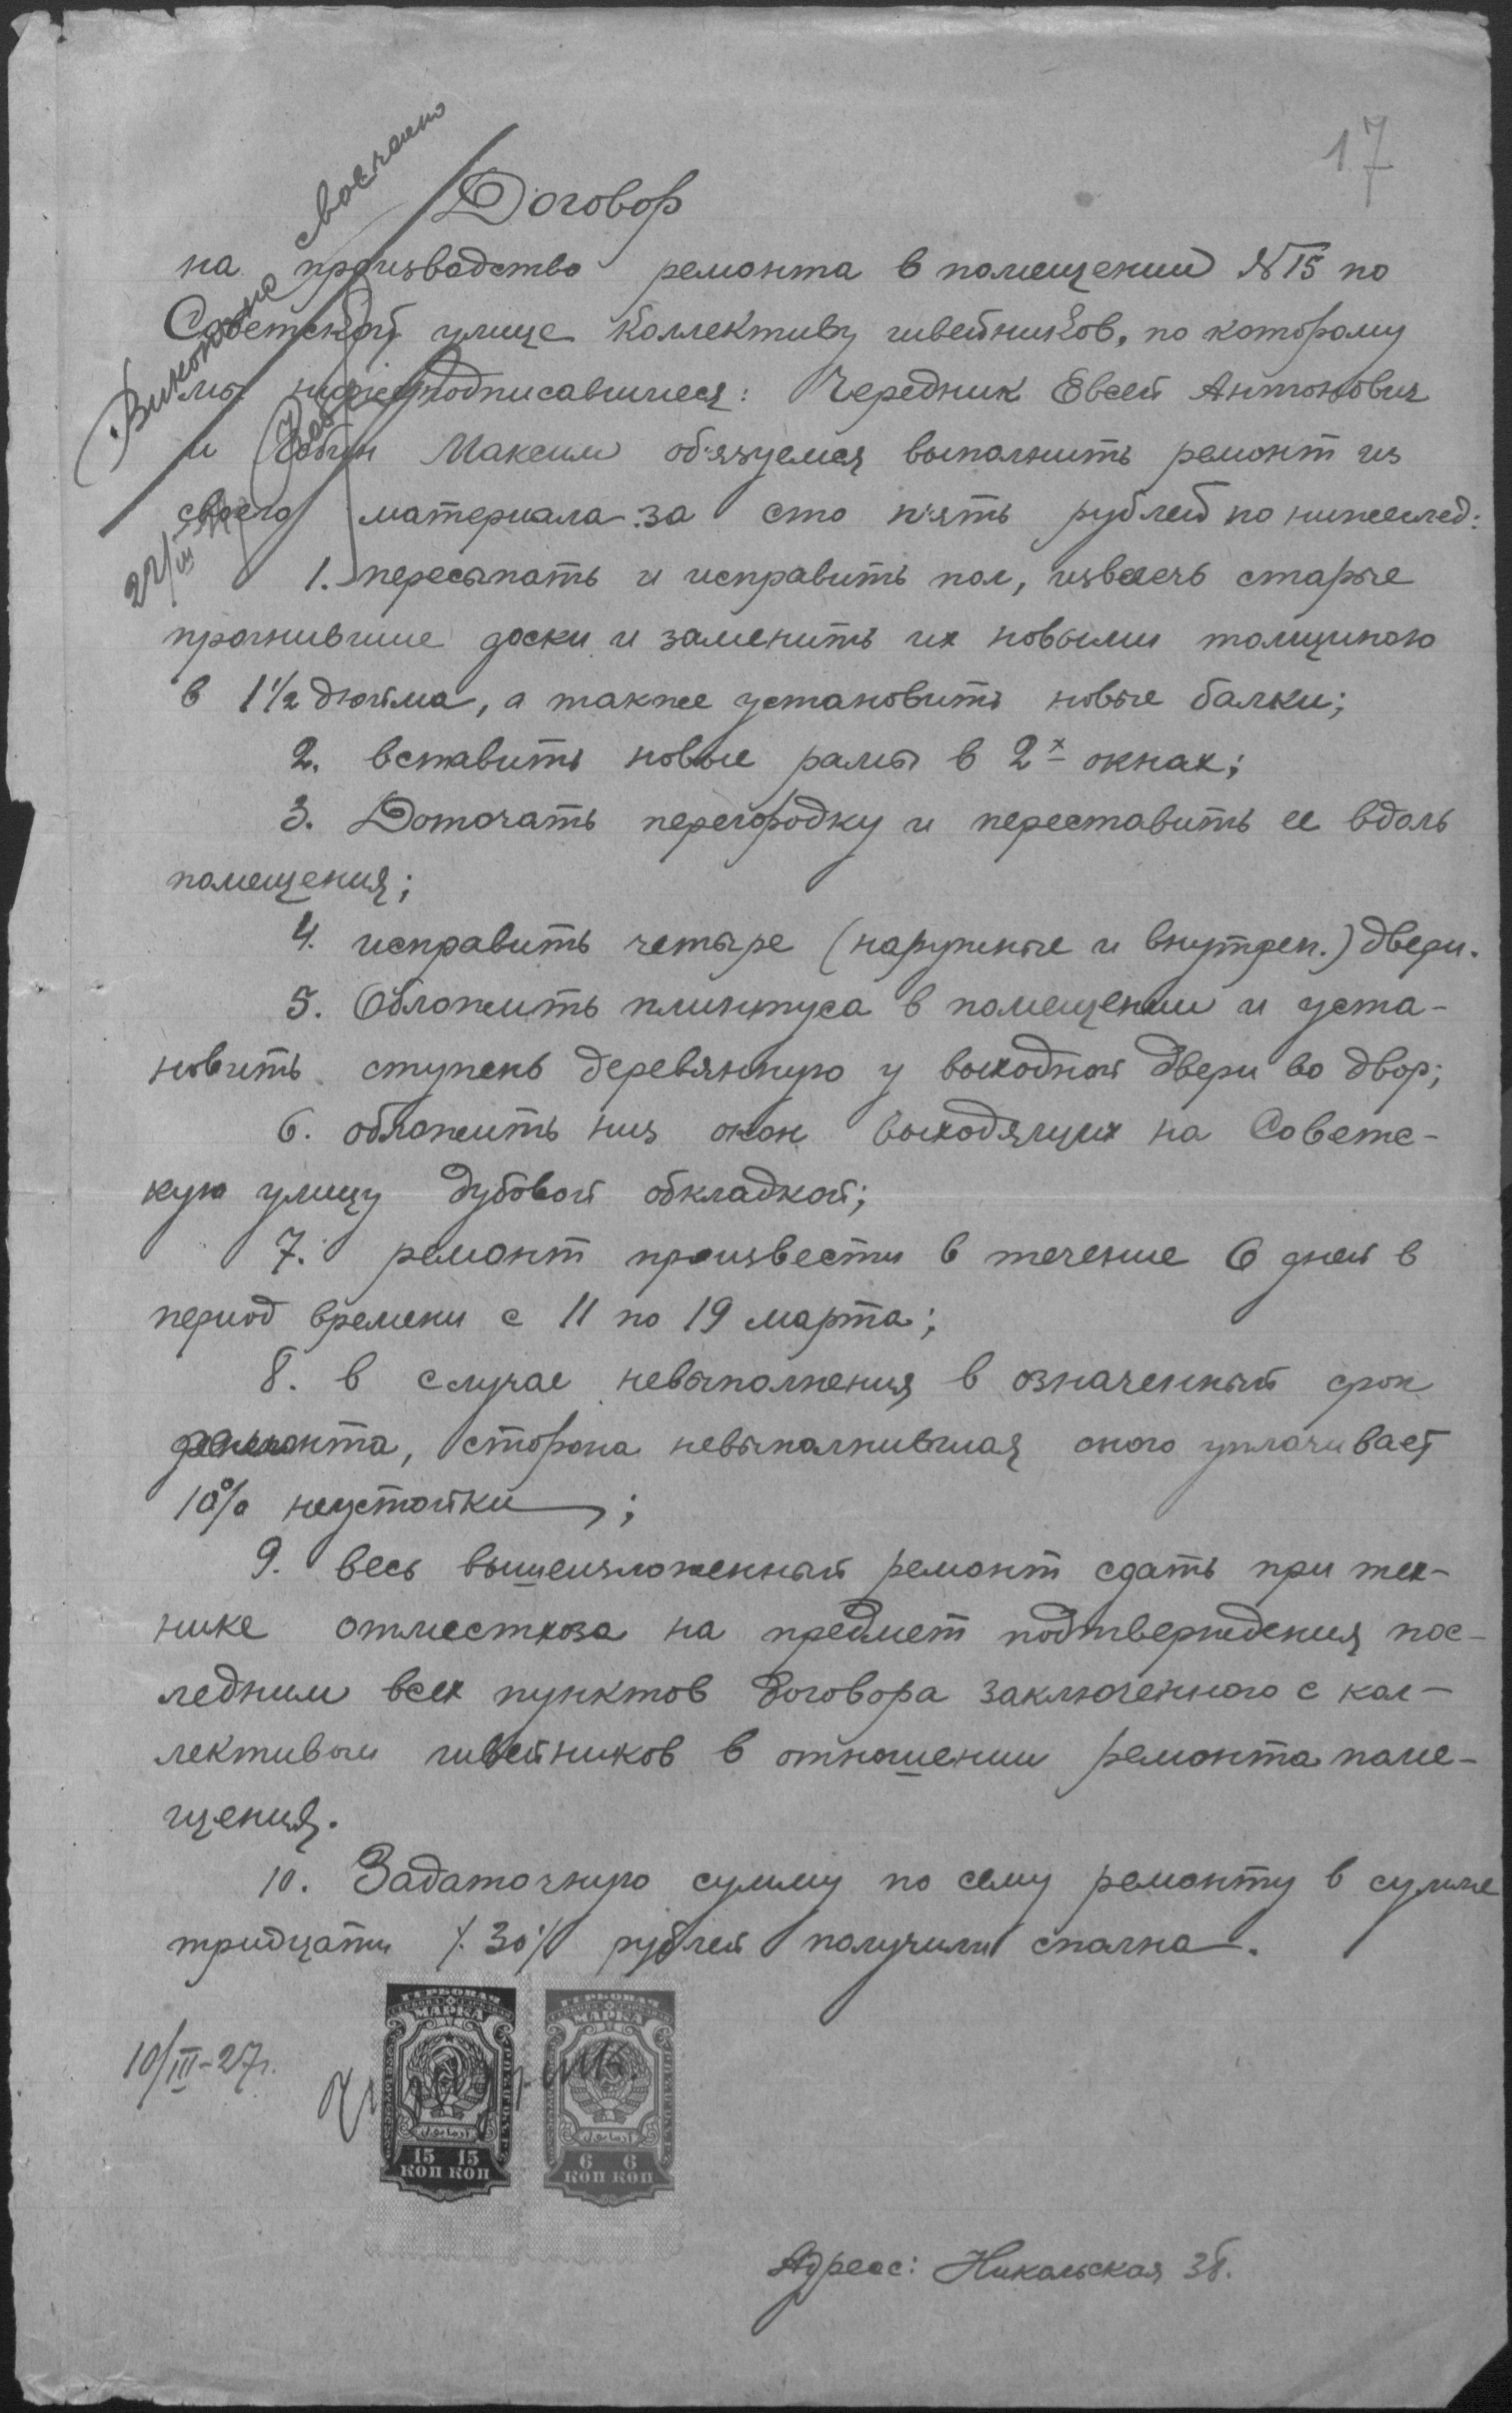 17
Договор
на производство ремонта в помещении №15 по
Советской улице Коллективу швейников, по которому
мы нижеподписавшиеся: Чередник Евсей Антонович
и Максим об'язуемся выполнить ремонт из
своего материала за сто п'ять рублей по нижеслед:
1. пересыпать и исправить пол, извлечь старые
прогнившие доски и заменить их новыми толщиною
в 1½ дюйма, а также установить новые балки;
2. вставить новые рамы в 2х окнах;
3. Доточать перегородку и переставить ее вдоль
помещения;
4. исправить четыре (наружные и внутрен.) двери.
5. Обложить плинтуса в помещении и уста-
новить ступень деревянную у выходной двери во двор;
6. обложить низ окон выходящих на Советс-
кую улицу дубовой обкладкой;
7. ремонт произвести в течение 6 дней в
период времени с 11 по 19 марта;
8. в случае невыполнения в означенный срок
ремонта, сторона невыполнившая оного уплачивает
10% неустойки;
9. весь вышеизложенный ремонт сдать при тех-
нике отместхоза на предмет подтверждения пос-
ледним всех пунктов договора заключенного с кол-
лективом швейников в отношении ремонта поме-
щения.
10. Задаточную сумму по сему ремонту в сумме
тридцати /.30/. рублей получили сполна.
10/III-27г.
ГЕРБОВАЯ
МАРКА
15 15
КОП КОП
ГЕРБОВАЯ
МАРКА
6 6
КОП КОП
Адрес: Никольская 38.
Виконано своєчасно